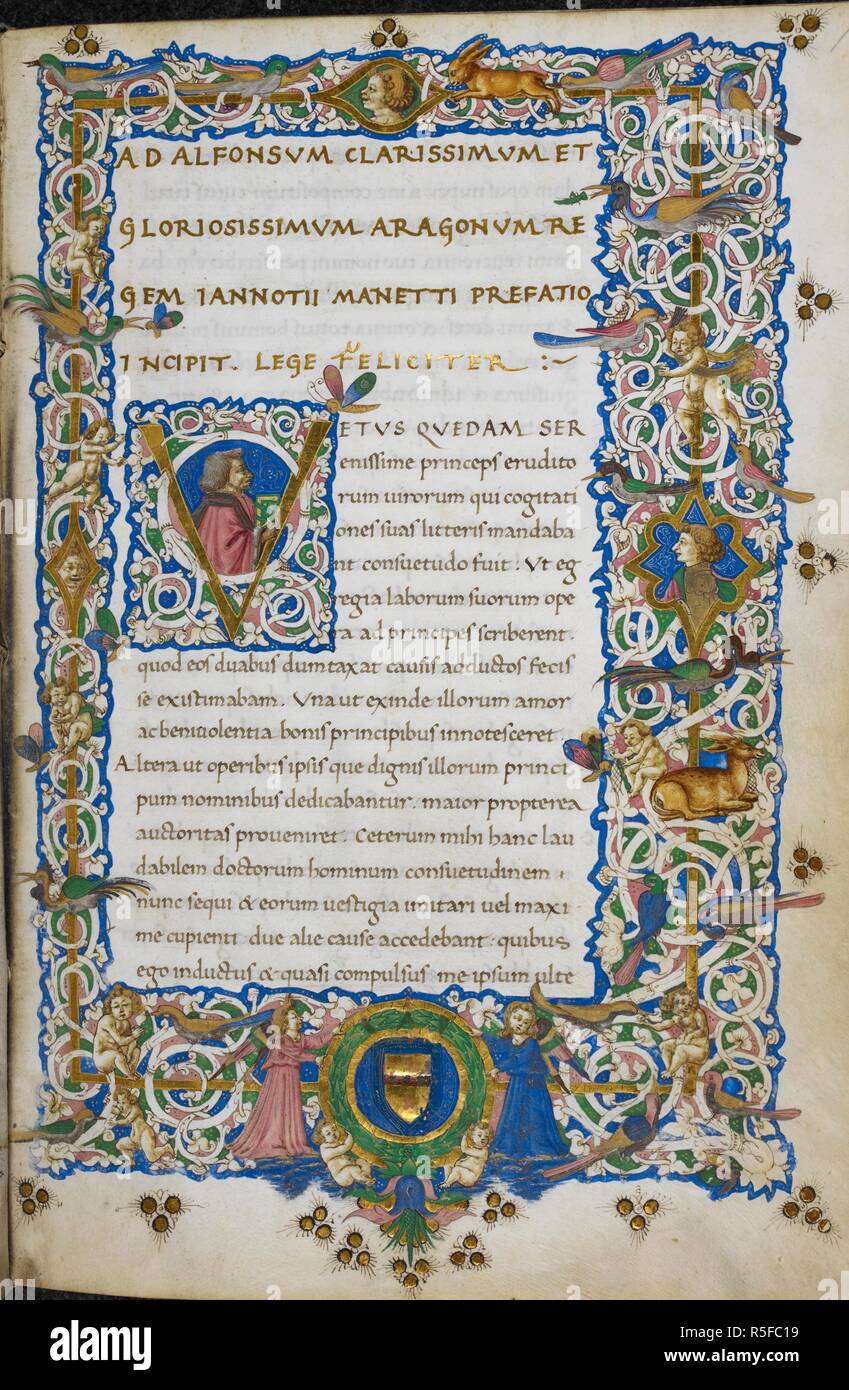 AD ALFONSVM CLARISSIMVM ET
GLORIOSISSIMVM ARAGONVM RE
GEM IANNOTII MANETTI PREFATIO
INCIPIT. LEGE FELICITER :~
VETVS QVEDAM SER
enissime princeps erudito
rum uirorum qui cogitati
ones suas litteris mandaba
nt consuetudo fuit. Vt eg
regia laborum suorum ope
ra ad principes scriberent.
quod eos duabus dumtaxat causis adductos fecis
se existimabam. Vna ut exinde illorum amor
ac beniuolentia bonis principibus innotesceret.
Altera ut operibus ipsis que dignis illorum princi
pum nominibus dedicabantur. maior propterea
auctoritas proueniret. Ceterum mihi hanc lau
dabilem doctorum hominum consuetudinem .
nunc sequi & eorum uestigia imitari uel maxi
me cupienti due alie cause accedebant quibus
ego inductus & quasi compulsus me ipsum ulte
alamy
Image ID: R5FC19
www.alamy.com